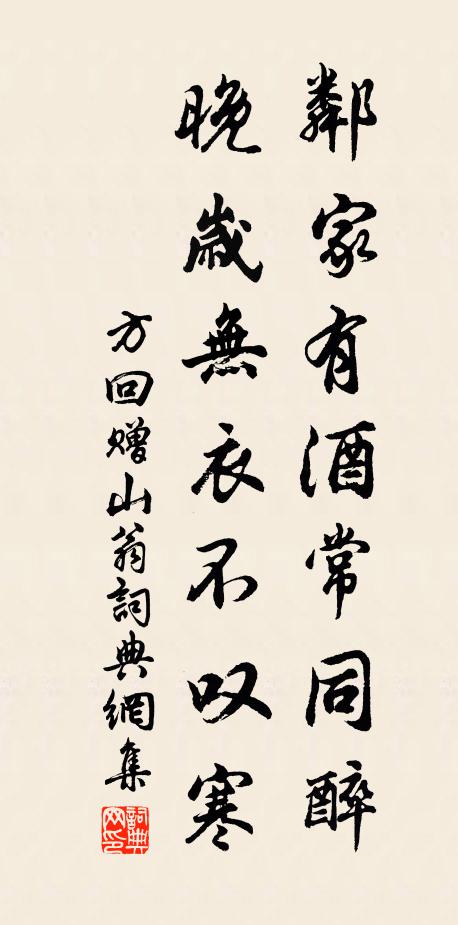 鄰家有酒常同醉
晚歲無衣不叹寒
方回赠山翁詞典網集
詞典网印